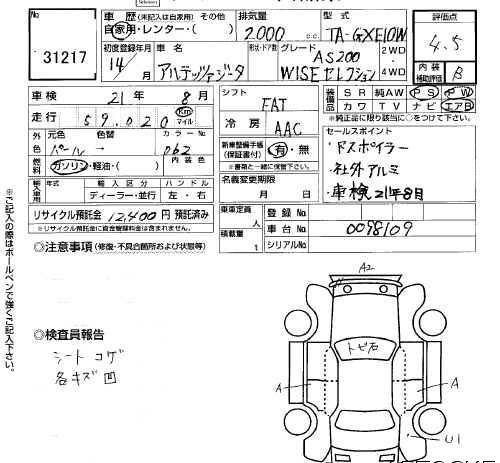 No
31217
車歴 (未記入は自家用) その他
自家用・レンター・( )
排気量
2.000 cc
型式
TA-GXE10W
評価点
4.5
内装
補助評価
B
初度登録年月
14 年 月
車名
アルテッツァジータ
形状・ドア数
グレード
AS200
WISEセレクション
2WD
4WD
車検 21年 8月
シフト
FAT
装備品
SR 純AW PS PW
カワ TV ナビ エアB
※純正品に限り該当に○をつけて下さい。
走行 59,020 Km マイル
冷房
AAC
セールスポイント
・ドスポイラー
・社外アルミ
・車検21年8月
外色
元色 色替 カラーNo
パール → 062
内装色
燃料
ガソリン・軽油・( )
新車整備手帳
(保証書付)
有・無
※書類と一緒に保管して下さい。
輸入車用
年式 輸入区分 ハンドル
ディーラー・並行 左・右
名義変更期限
月 日
リサイクル預託金 12,400円 預託済み
※リサイクル預託金に資金管理料金は含まれません。
乗車定員 人
積載量 t
登録No
車台No 0098109
シリアルNo
◎注意事項 (修復・不具合箇所および状態等)
※ご記入の際はボールペンで強くご記入下さい。
◎検査員報告
シートコゲ
各キズ凹
A2
トビ石
A
A
U1